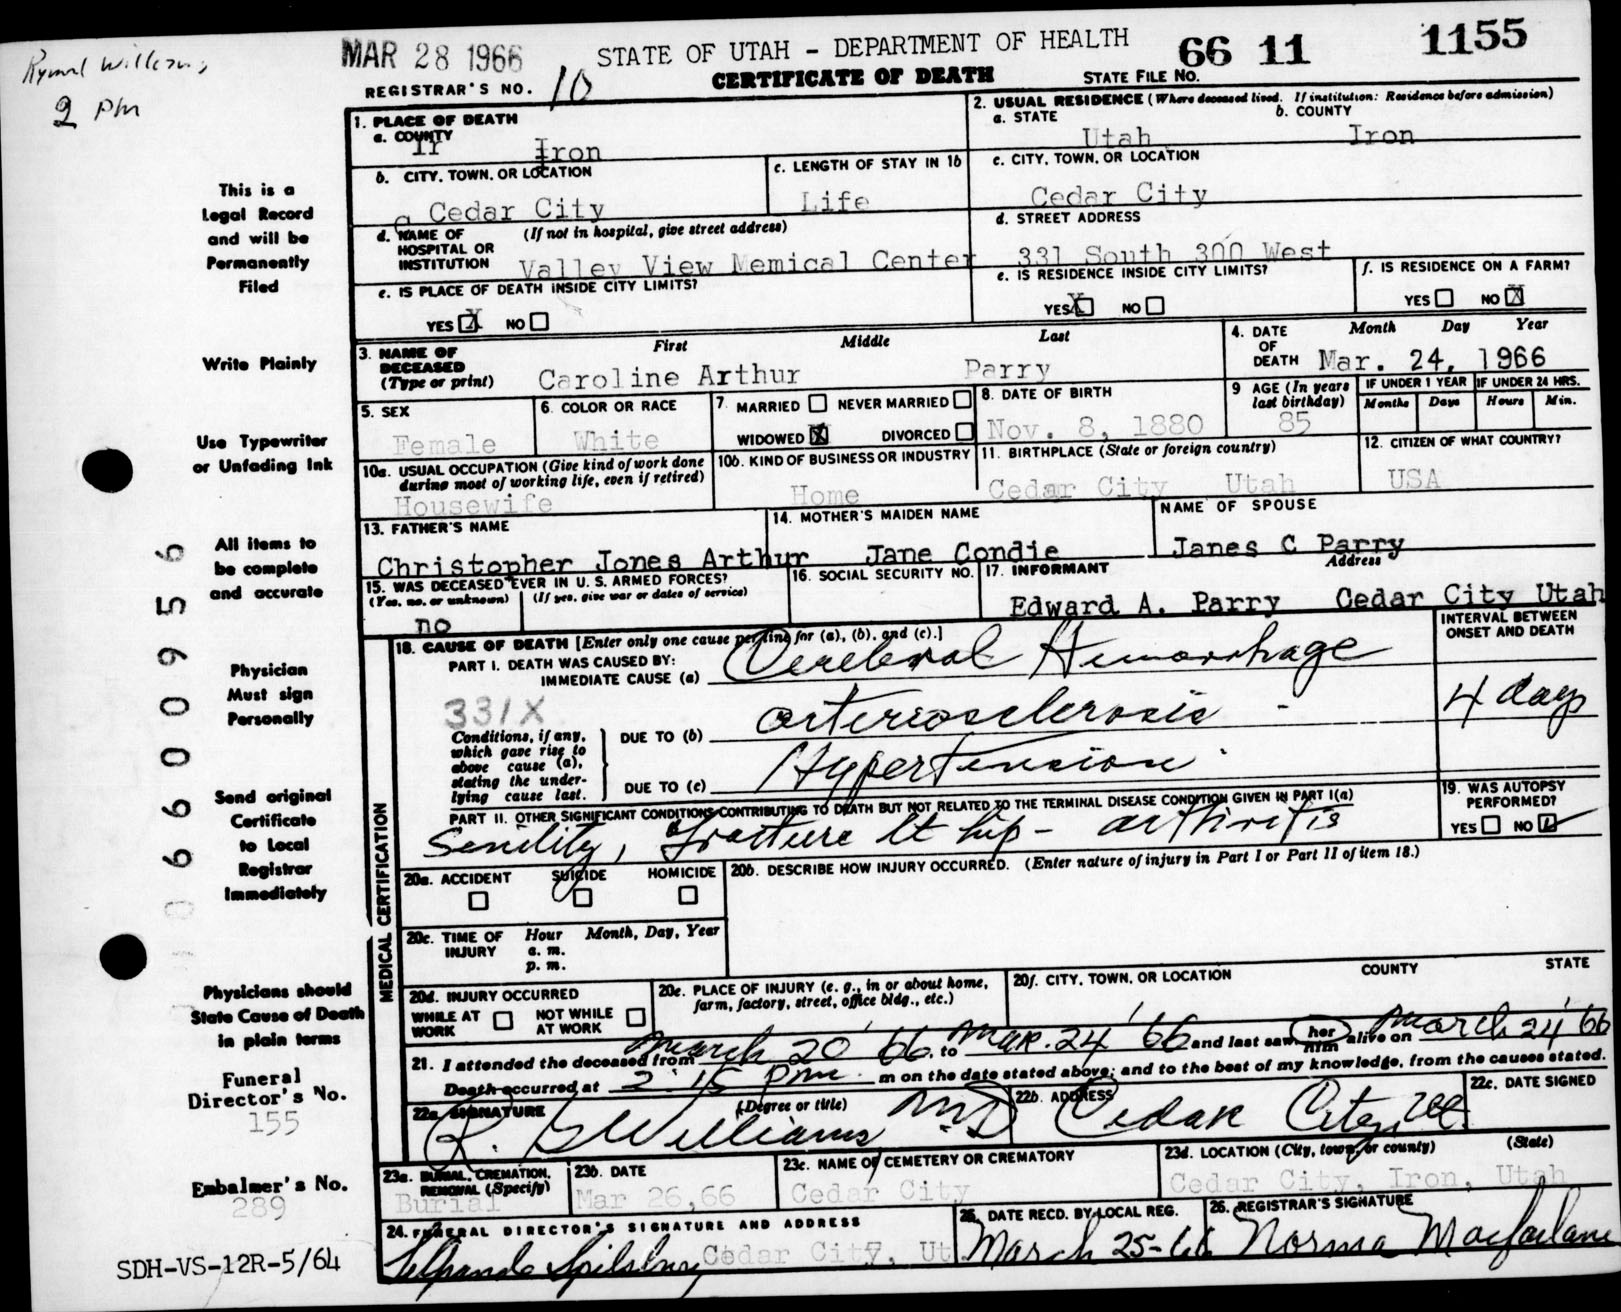 Rymal Williams
2 Pm
MAR 28 1966
STATE OF UTAH - DEPARTMENT OF HEALTH
66 11 1155
CERTIFICATE OF DEATH
STATE FILE NO.
REGISTRAR'S NO. 10
1. PLACE OF DEATH
a. COUNTY
Ir Iron
2. USUAL RESIDENCE (Where deceased lived. If institution: Residence before admission)
a. STATE b. COUNTY
Utah Iron
b. CITY, TOWN, OR LOCATION
C Cedar City
c. LENGTH OF STAY IN 1b
Life
c. CITY, TOWN, OR LOCATION
Cedar City
d. NAME OF HOSPITAL OR INSTITUTION (If not in hospital, give street address)
Valley View Memical Center
d. STREET ADDRESS
331 South 300 West
e. IS PLACE OF DEATH INSIDE CITY LIMITS?
YES X NO
e. IS RESIDENCE INSIDE CITY LIMITS?
YES X NO
f. IS RESIDENCE ON A FARM?
YES NO X
3. NAME OF DECEASED (Type or print)
First Middle Last
Caroline Arthur Parry
4. DATE OF DEATH Month Day Year
Mar. 24, 1966
5. SEX
Female
6. COLOR OR RACE
White
7. MARRIED NEVER MARRIED
WIDOWED X DIVORCED
8. DATE OF BIRTH
Nov. 8, 1880
9 AGE (In years last birthday)
85
IF UNDER 1 YEAR IF UNDER 24 HRS.
Months Days Hours Min.
10a. USUAL OCCUPATION (Give kind of work done during most of working life, even if retired)
Housewife
10b. KIND OF BUSINESS OR INDUSTRY
Home
11. BIRTHPLACE (State or foreign country)
Cedar City Utah
12. CITIZEN OF WHAT COUNTRY?
USA
13. FATHER'S NAME
Christopher Jones Arthur
14. MOTHER'S MAIDEN NAME
Jane Condie
NAME OF SPOUSE
Janes C Parry
15. WAS DECEASED EVER IN U. S. ARMED FORCES?
(Yes, no, or unknown) (If yes, give war or dates of service)
no
16. SOCIAL SECURITY NO.
17. INFORMANT Address
Edward A. Parry Cedar City Utah
18. CAUSE OF DEATH [Enter only one cause per line for (a), (b), and (c).]
INTERVAL BETWEEN ONSET AND DEATH
PART I. DEATH WAS CAUSED BY:
IMMEDIATE CAUSE (a) Cerebral Hemorrhage
331X
4 days
Conditions, if any, which gave rise to above cause (a), stating the underlying cause last.
DUE TO (b) arteriosclerosis -
DUE TO (c) Hypertension
PART II. OTHER SIGNIFICANT CONDITIONS CONTRIBUTING TO DEATH BUT NOT RELATED TO THE TERMINAL DISEASE CONDITION GIVEN IN PART I(a)
Senility, fracture lt hip - arthritis
19. WAS AUTOPSY PERFORMED?
YES NO
MEDICAL CERTIFICATION
20a. ACCIDENT SUICIDE HOMICIDE
20b. DESCRIBE HOW INJURY OCCURRED. (Enter nature of injury in Part I or Part II of item 18.)
20c. TIME OF INJURY Hour Month, Day, Year
a. m.
p. m.
20d. INJURY OCCURRED
WHILE AT WORK NOT WHILE AT WORK
20e. PLACE OF INJURY (e. g., in or about home, farm, factory, street, office bldg., etc.)
20f. CITY, TOWN, OR LOCATION COUNTY STATE
21. I attended the deceased from March 20 '66. to Mar. 24 '66 and last saw her him alive on March 24 '66
Death occurred at 2:15 Pm. m on the date stated above; and to the best of my knowledge, from the causes stated.
22a. SIGNATURE (Degree or title)
R. G Williams M.D
22b. ADDRESS
Cedar City, Ut.
22c. DATE SIGNED
23a. BURIAL, CREMATION, REMOVAL (Specify)
Burial
23b. DATE
Mar 26,66
23c. NAME OF CEMETERY OR CREMATORY
Cedar City
23d. LOCATION (City, town, or county) (State)
Cedar City, Iron, Utah
24. FUNERAL DIRECTOR'S SIGNATURE AND ADDRESS
Spilsbury Cedar City, Ut
25. DATE RECD. BY LOCAL REG.
March 25-66
26. REGISTRAR'S SIGNATURE
Norma Macfarlane
This is a
Legal Record
and will be
Permanently
Filed
Write Plainly
Use Typewriter
or Unfading Ink
All items to
be complete
and accurate
Physician
Must sign
Personally
Send original
Certificate
to Local
Registrar
Immediately
Physicians should
State Cause of Death
in plain terms
Funeral
Director's No.
155
Embalmer's No.
289
06600956
SDH-VS-12R-5/64